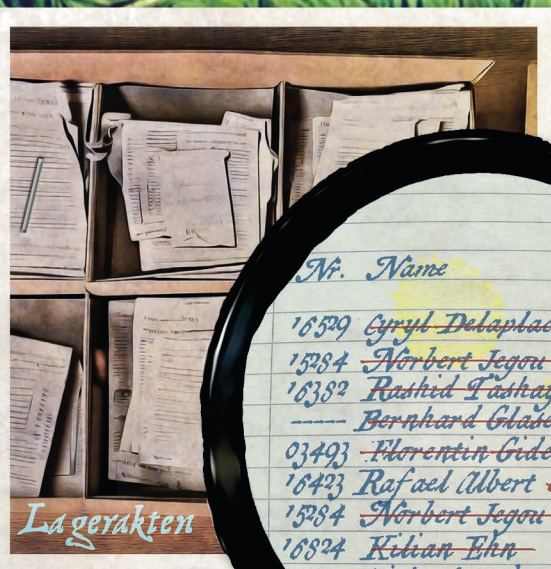 Nr. Name
16529 Cyryl Delaplac
15284 Norbert Jegou
16382 Rashid Tashay
----- Bernhard Glase
03493 Florentin Gide
16423 Rafael Albert
15284 Norbert Jegou
16824 Kilian Ehn
Lagerakten